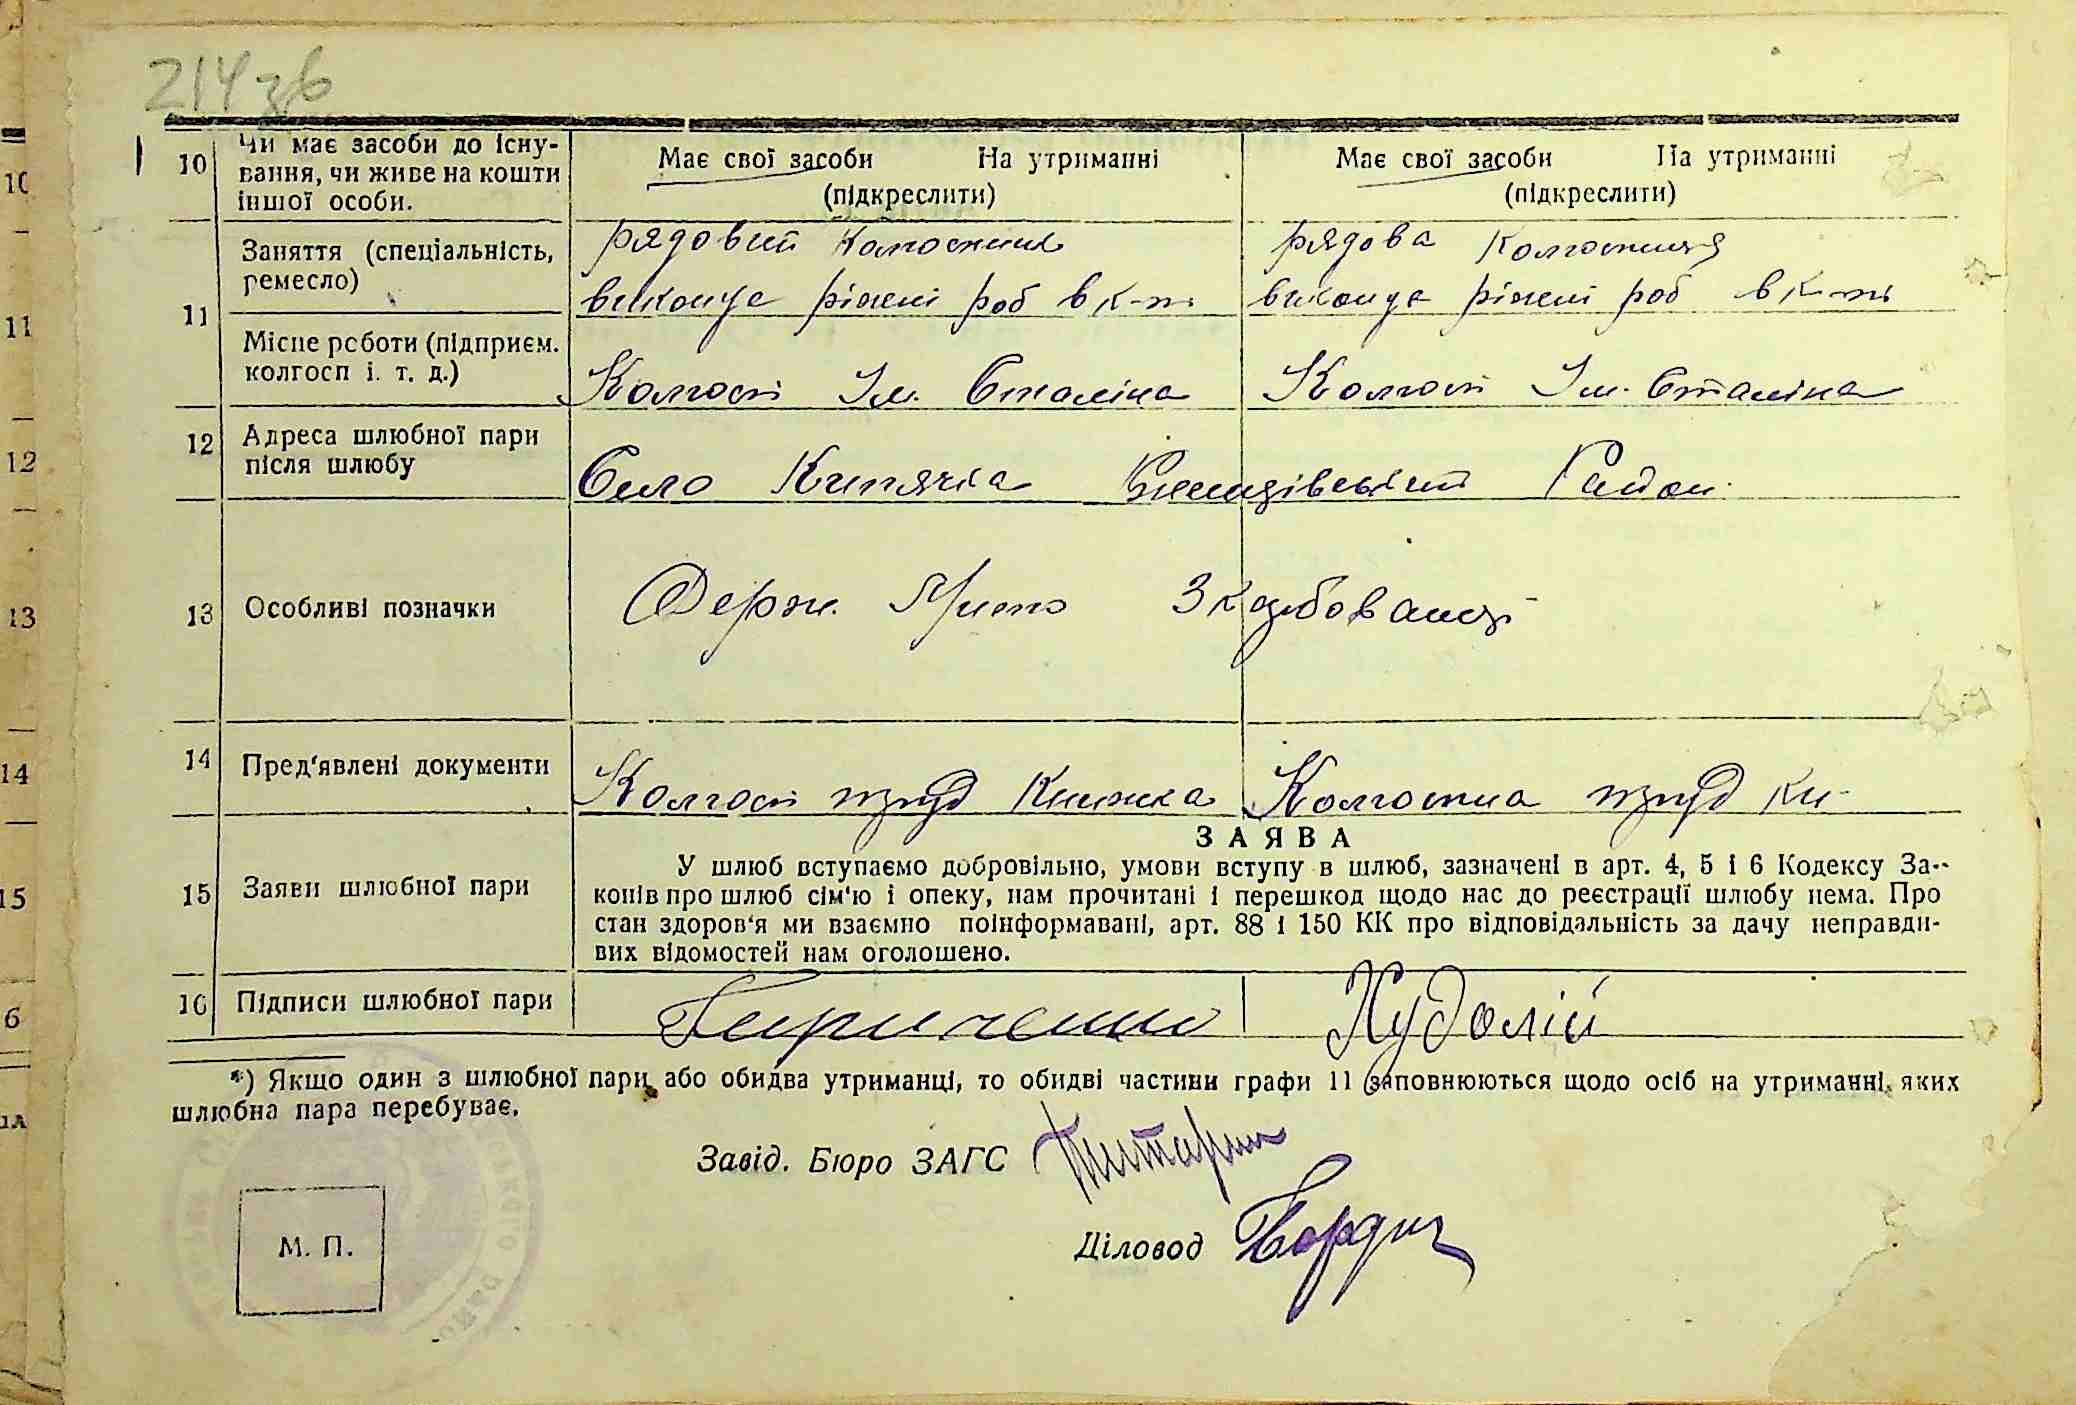 214 зв
10 Чи має засоби до існу-
вання, чи живе на кошти
іншої особи.
Має свої засоби На утриманні
(підкреслити)
Має свої засоби На утриманні
(підкреслити)
11 Заняття (спеціальність,
ремесло)
рядовий колгоспник
виконує ріжні роб в к-ті
рядова колгоспниця
виконує ріжні роб в к-ті
Місце роботи (підприєм.
колгосп і. т. д.)
Колгосп Ім. Сталіна
Колгосп Ім. Сталіна
12 Адреса шлюбної пари
після шлюбу
Село Кипячка Район.
13 Особливі позначки
Держ. Мито
14 Пред'явлені документи
Колгосп труд Книжка
Колгоспна труд кн-
15 Заяви шлюбної пари
ЗАЯВА
У шлюб вступаємо добровільно, умови вступу в шлюб, зазначені в арт. 4, 5 і 6 Кодексу За-
конів про шлюб сім'ю і опеку, нам прочитані і перешкод щодо нас до реєстрації шлюбу нема. Про
стан здоров'я ми взаємно поінформавані, арт. 88 і 150 КК про відповідальність за дачу неправди-
вих відомостей нам оголошено.
16 Підписи шлюбної пари
Кириченко
Худолій
*) Якщо один з шлюбної пари або обидва утриманці, то обидві частини графи 11 заповнюються щодо осіб на утриманні, яких
шлюбна пара перебуває.
Завід. Бюро ЗАГС
Діловод
М. П.
10
11
12
13
14
15
6